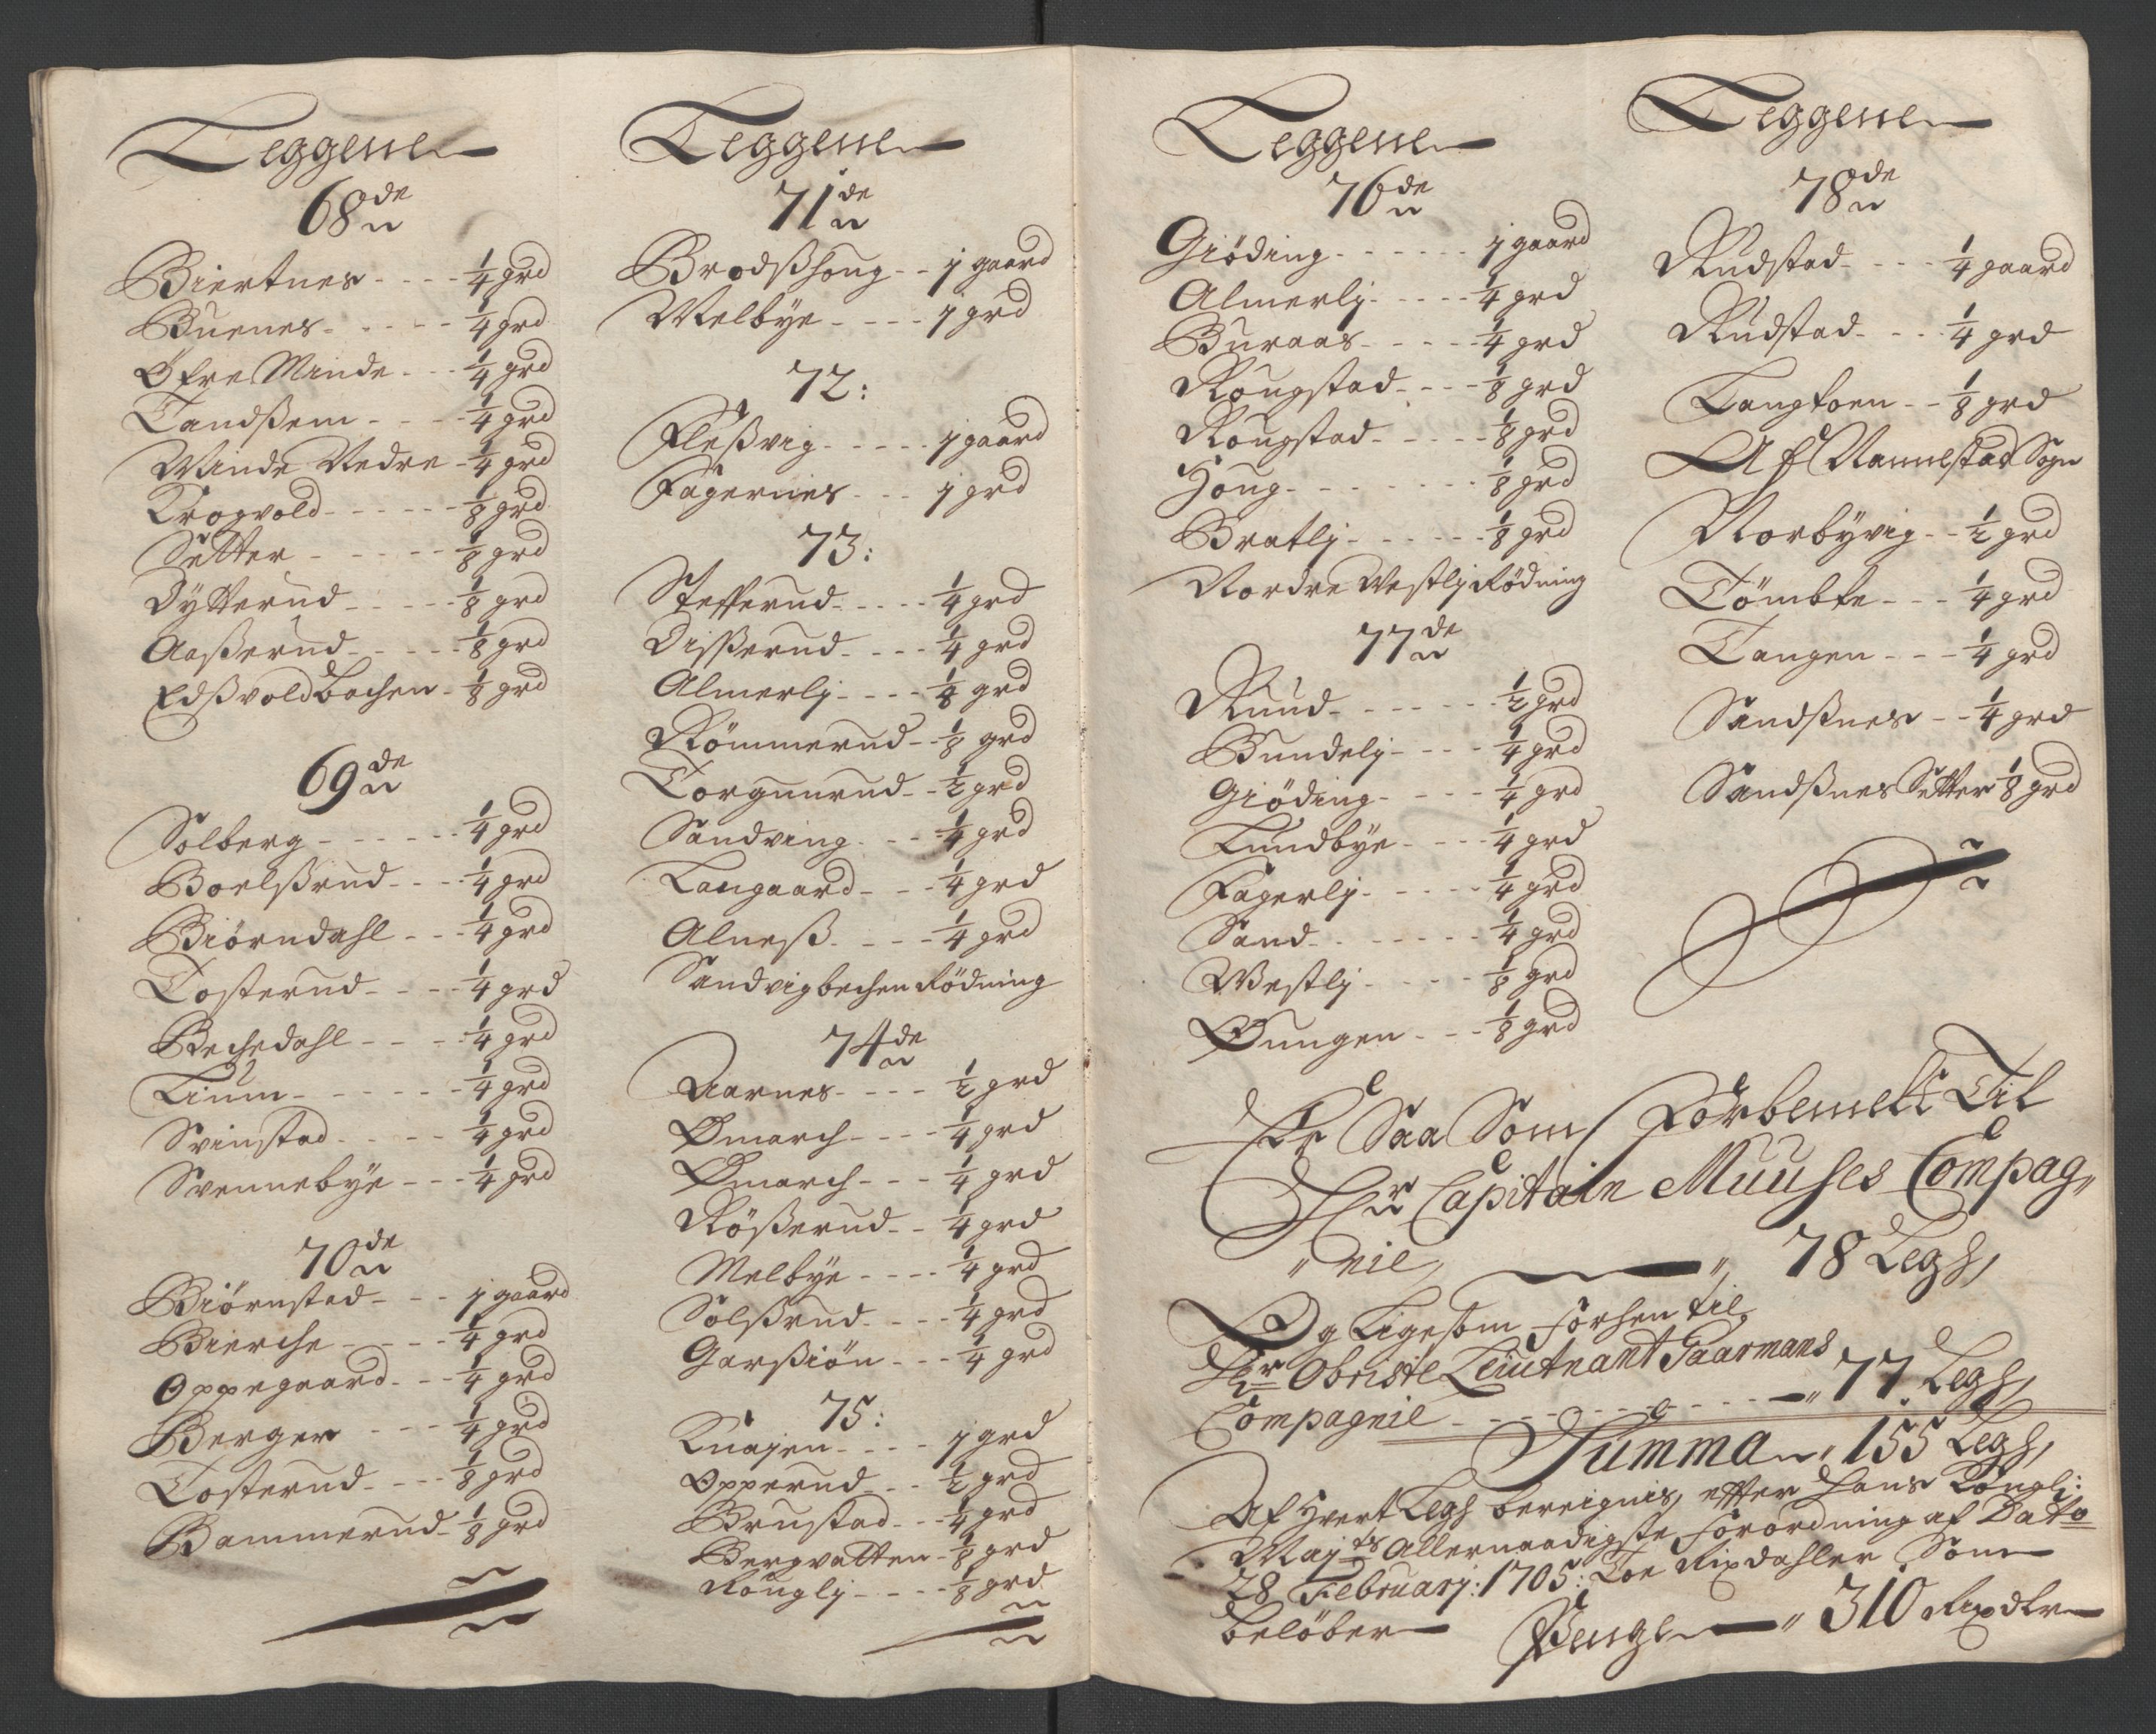 Leggene
68de
Biertnes - - - - 1/4 grd
Buenes - - - - - 1/4 grd
Øfre Minde - - - 1/4 grd
Tandßem - - - - 1/4 grd
Minde Nedre - 1/4 grd
Krogvold - - - - - 1/8 grd
Setter - - - - - 1/8 grd
Dytterud - - - - - 1/8 grd
Aaßerud - - - - - 1/8 grd
Edßvold Bachen - 1/8 grd
69de
Solberg - - - - - - 1/4 grd
Boelßrud - - - - 1/4 grd
Biørndahl - - - 1/4 grd
Tosterud - - - - 1/4 grd
Bechedahl - - - - 1/4 grd
Lium - - - - - - 1/4 grd
Svinstad - - - - - 1/4 grd
Svennebye - - - 1/4 grd
70de
Biørnstad - - - 1 gaard
Bierche - - - - 1/4 grd
Oppegaard - - - 1/4 grd
Berger - - - 1/4 grd
Tosterud - - - 1/8 grd
Bammerud - 1/8 grd
Leggene
71de
Brodßhoug - - 1 gaard
Melbye - - - - 1 grd
72:
Fleßvig - - - - - 1 gaard
Fagernes - - - 1 grd
73:
Stefferud - - - - - 1/4 grd
Dißerud - - - - 1/4 grd
Almerlj - - - - 1/8 grd
Römmerud - - 1/8 grd
Torgunrud - - 1/2 grd
Sandving - - - 1/4 grd
Langaard - - - 1/4 grd
Alneß - - - - 1/4 grd
Sandvigbechen Rödning
74de
Aarnes - - - - 1/2 grd
Ømarch - - - - 1/4 grd
Ømarch - - - 1/4 grd
Rößerud - - 1/4 grd
Melbye - - - - 1/4 grd
Solßrud - - - - 1/4 grd
Garßiön - - - 1/4 grd
75:
Knapen - - - - 1 grd
Opperud - - - 1/2 grd
Brustad - - - 1/4 grd
Bergvatten - 1/8 grd
Rouglj - - - - 1/8 grd
Leggene
76de
Giöding - - - - - - 1 gaard
Almerlj - - - - - 1/4 grd
Buraas - - - - - 1/4 grd
Rougstad - - - 1/8 grd
Rougstad - - - - - 1/8 grd
Houg - - - - - - - 1/8 grd
Bratlj - - - - - - 1/8 grd
Nordre Westlj Rödning
77de
Ruud - - - - - - 1/2 grd
Bundelj - - - - 1/4 grd
Giöding - - - - 1/4 grd
Lundbye - - - - 1/4 grd
Fagerlj - - - - - 1/4 grd
Sand - - - - - - - 1/4 grd
Westlj - - - - - 1/8 grd
Øungen - - - 1/8 grd
Leggene
78de
Rudstad - - - - 1/4 gaard
Rudstad - - - 1/4 grd
Langtoen - - 1/8 grd
Af Nannestad Sogn
Norbyvig - - 1/2 grd
Tömbte - - - 1/4 grd
Tangen - - - 1/4 grd
Sandßnes - - 1/4 grd
Sandßnes Setter 1/8 grd
Er Saa Som Forbemelt Til
Hr Capitain Muuses Compag„
„nie, „ 78 Legh,
Og Ligesom forhen til
Hr Obriste Leiutnant Paarmans
Compagnie - - - - - - - - „ 77 Legh,
Summa „ 155 Legh,
Af Hvert Legh bereignis, efter Hans Kongl:
Mayts Allernaadigste forordning af Dato
28 Februarj: 1705: Toe Rixdahler Som
belöber Penge „ 310 Rixdlr